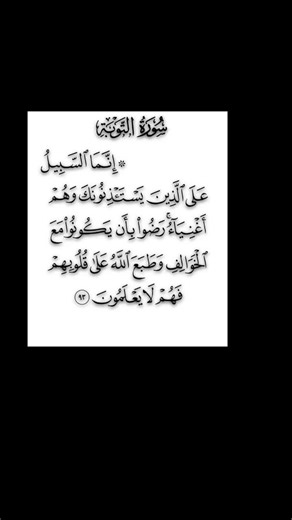 سُورَةُ التَّوْبَةِ
* إِنَّمَا ٱلسَّبِيلُ
عَلَى ٱلَّذِينَ يَسْتَـْٔذِنُونَكَ وَهُمْ
أَغْنِيَآءُۚ رَضُوا۟ بِأَن يَكُونُوا۟ مَعَ
ٱلْخَوَالِفِ وَطَبَعَ ٱللَّهُ عَلَىٰ قُلُوبِهِمْ
فَهُمْ لَا يَعْلَمُونَ ٩٣